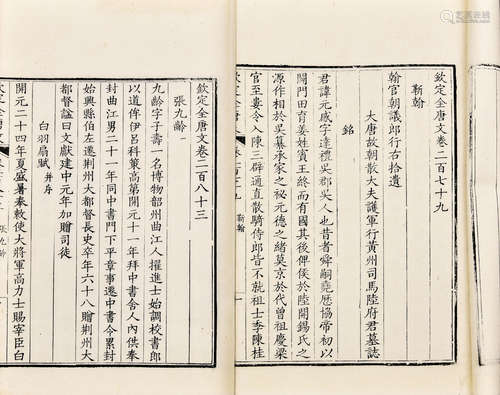 欽定全唐文卷二百七十九
靳翰
翰官朝議郎行右拾遺
大唐故朝散大夫護軍行黃州司馬陸府君墓誌
銘
君諱元感字達禮吳郡吳人也昔者舜嗣堯歷協帝初以
閉門田育姜姓賓王終而有國其後俾侯於陸開錫氏之
源作相於吳纂承家之祕元德之緒莫京於代曾祖慶梁
官至婁令入陳三辟通直散騎侍郎皆不就祖士季陳桂
靳翰
欽定全唐文卷二百八十三
張九齡一
九齡字子壽一名博物韶州曲江人擢進士始調校書郎
以道侔伊呂科策高第開元十一年拜中書舍人內供奉
封曲江男二十一年同中書門下平章事遷中書令累封
始興縣伯左遷荆州大都督長史卒年六十八贈荆州大
都督諡曰文獻建中元年加贈司徒
白羽扇賦并序
開元二十四年夏盛暑奉敕使大將軍高力士賜宰臣白
張九齡